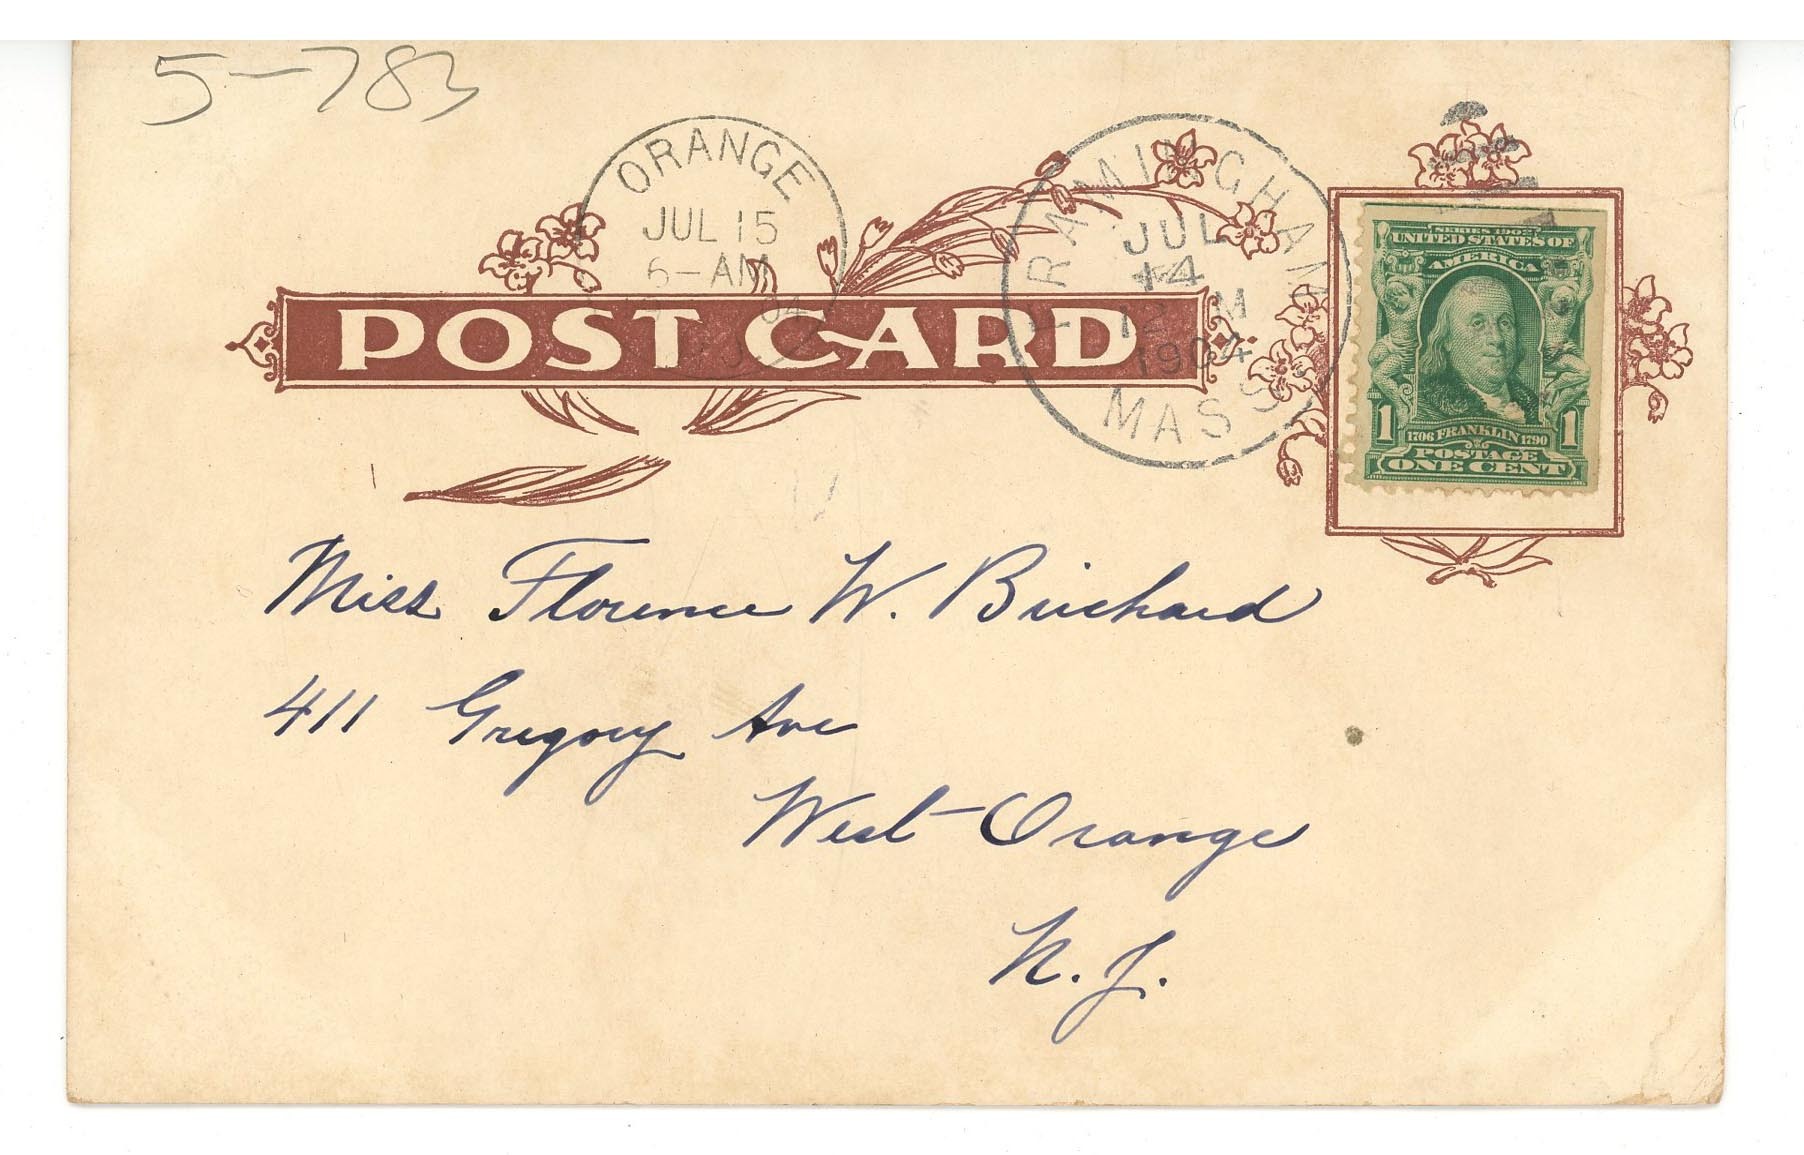 5-783
ORANGE
JUL 15
6-AM
04
FRAMINGHAM
JUL
14
12 M
1904
MASS
POST CARD
SERIES 1902
UNITED STATES OF
AMERICA
1 1
1706 FRANKLIN 1790
POSTAGE
ONE CENT
Miss Florence W. Brichard
411 Gregory Ave
West Orange
N. J.